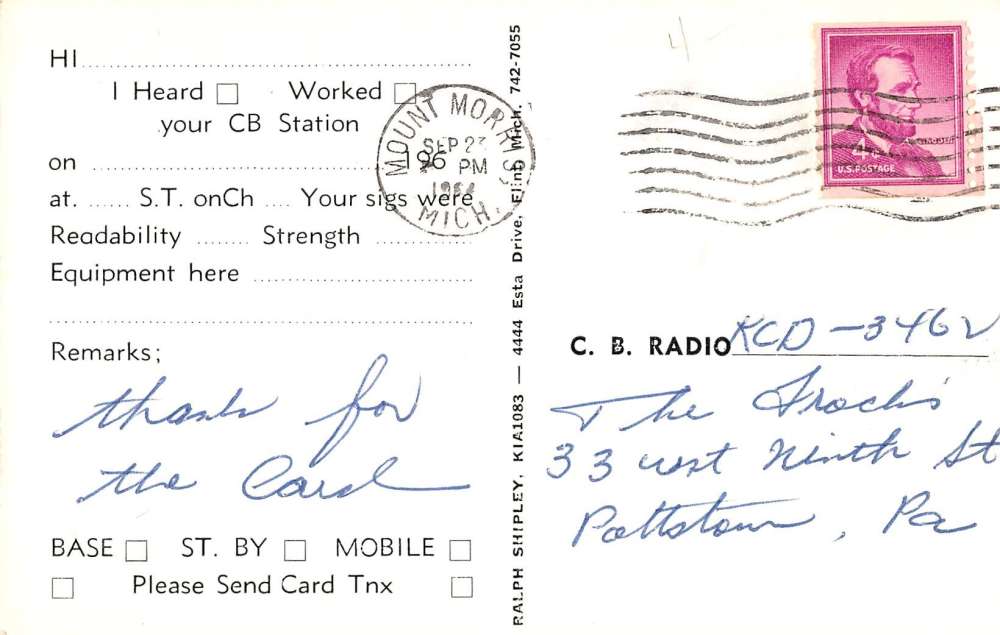 HI
I Heard □ Worked □
your CB Station
on ........ 196
at. ...... S.T. onCh .... Your sigs were
Readability ........ Strength ...............
Equipment here ..................................
Remarks;
thanks for
the Card
BASE □ ST. BY □ MOBILE □
□ Please Send Card Tnx □
MOUNT MORRIS
SEP 23
PM
MICH.
RALPH SHIPLEY, KIA1083 — 4444 Esta Drive, Flint, Mich. 742-7055
4¢
U.S. POSTAGE
C. B. RADIO KCD-3462
The
33 west Ninth St
Pottstown, Pa